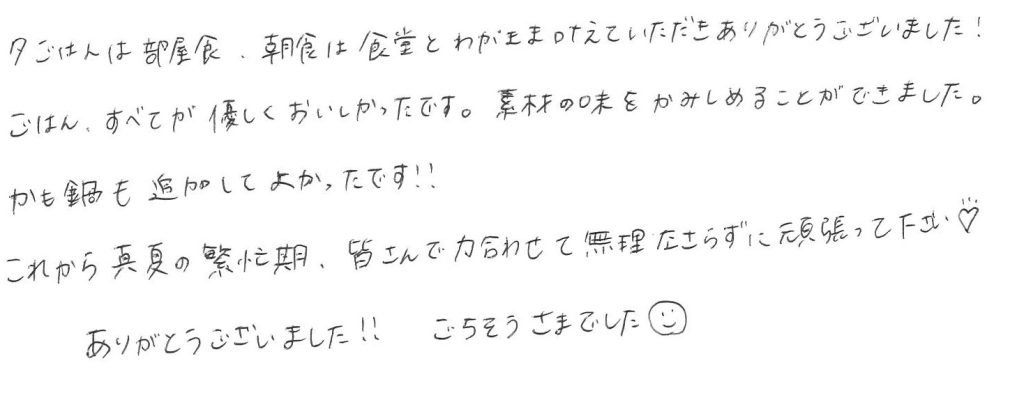 夕ごはんは部屋食、朝食は食堂とわがまま叶えていただきありがとうございました!
ごはん、すべてが優しくおいしかったです。素材の味をかみしめることができました。
かも鍋も追加してよかったです!!
これから真夏の繁忙期、皆さんで力合わせて無理なさらずに頑張って下さい♡
ありがとうございました!! ごちそうさまでした☺